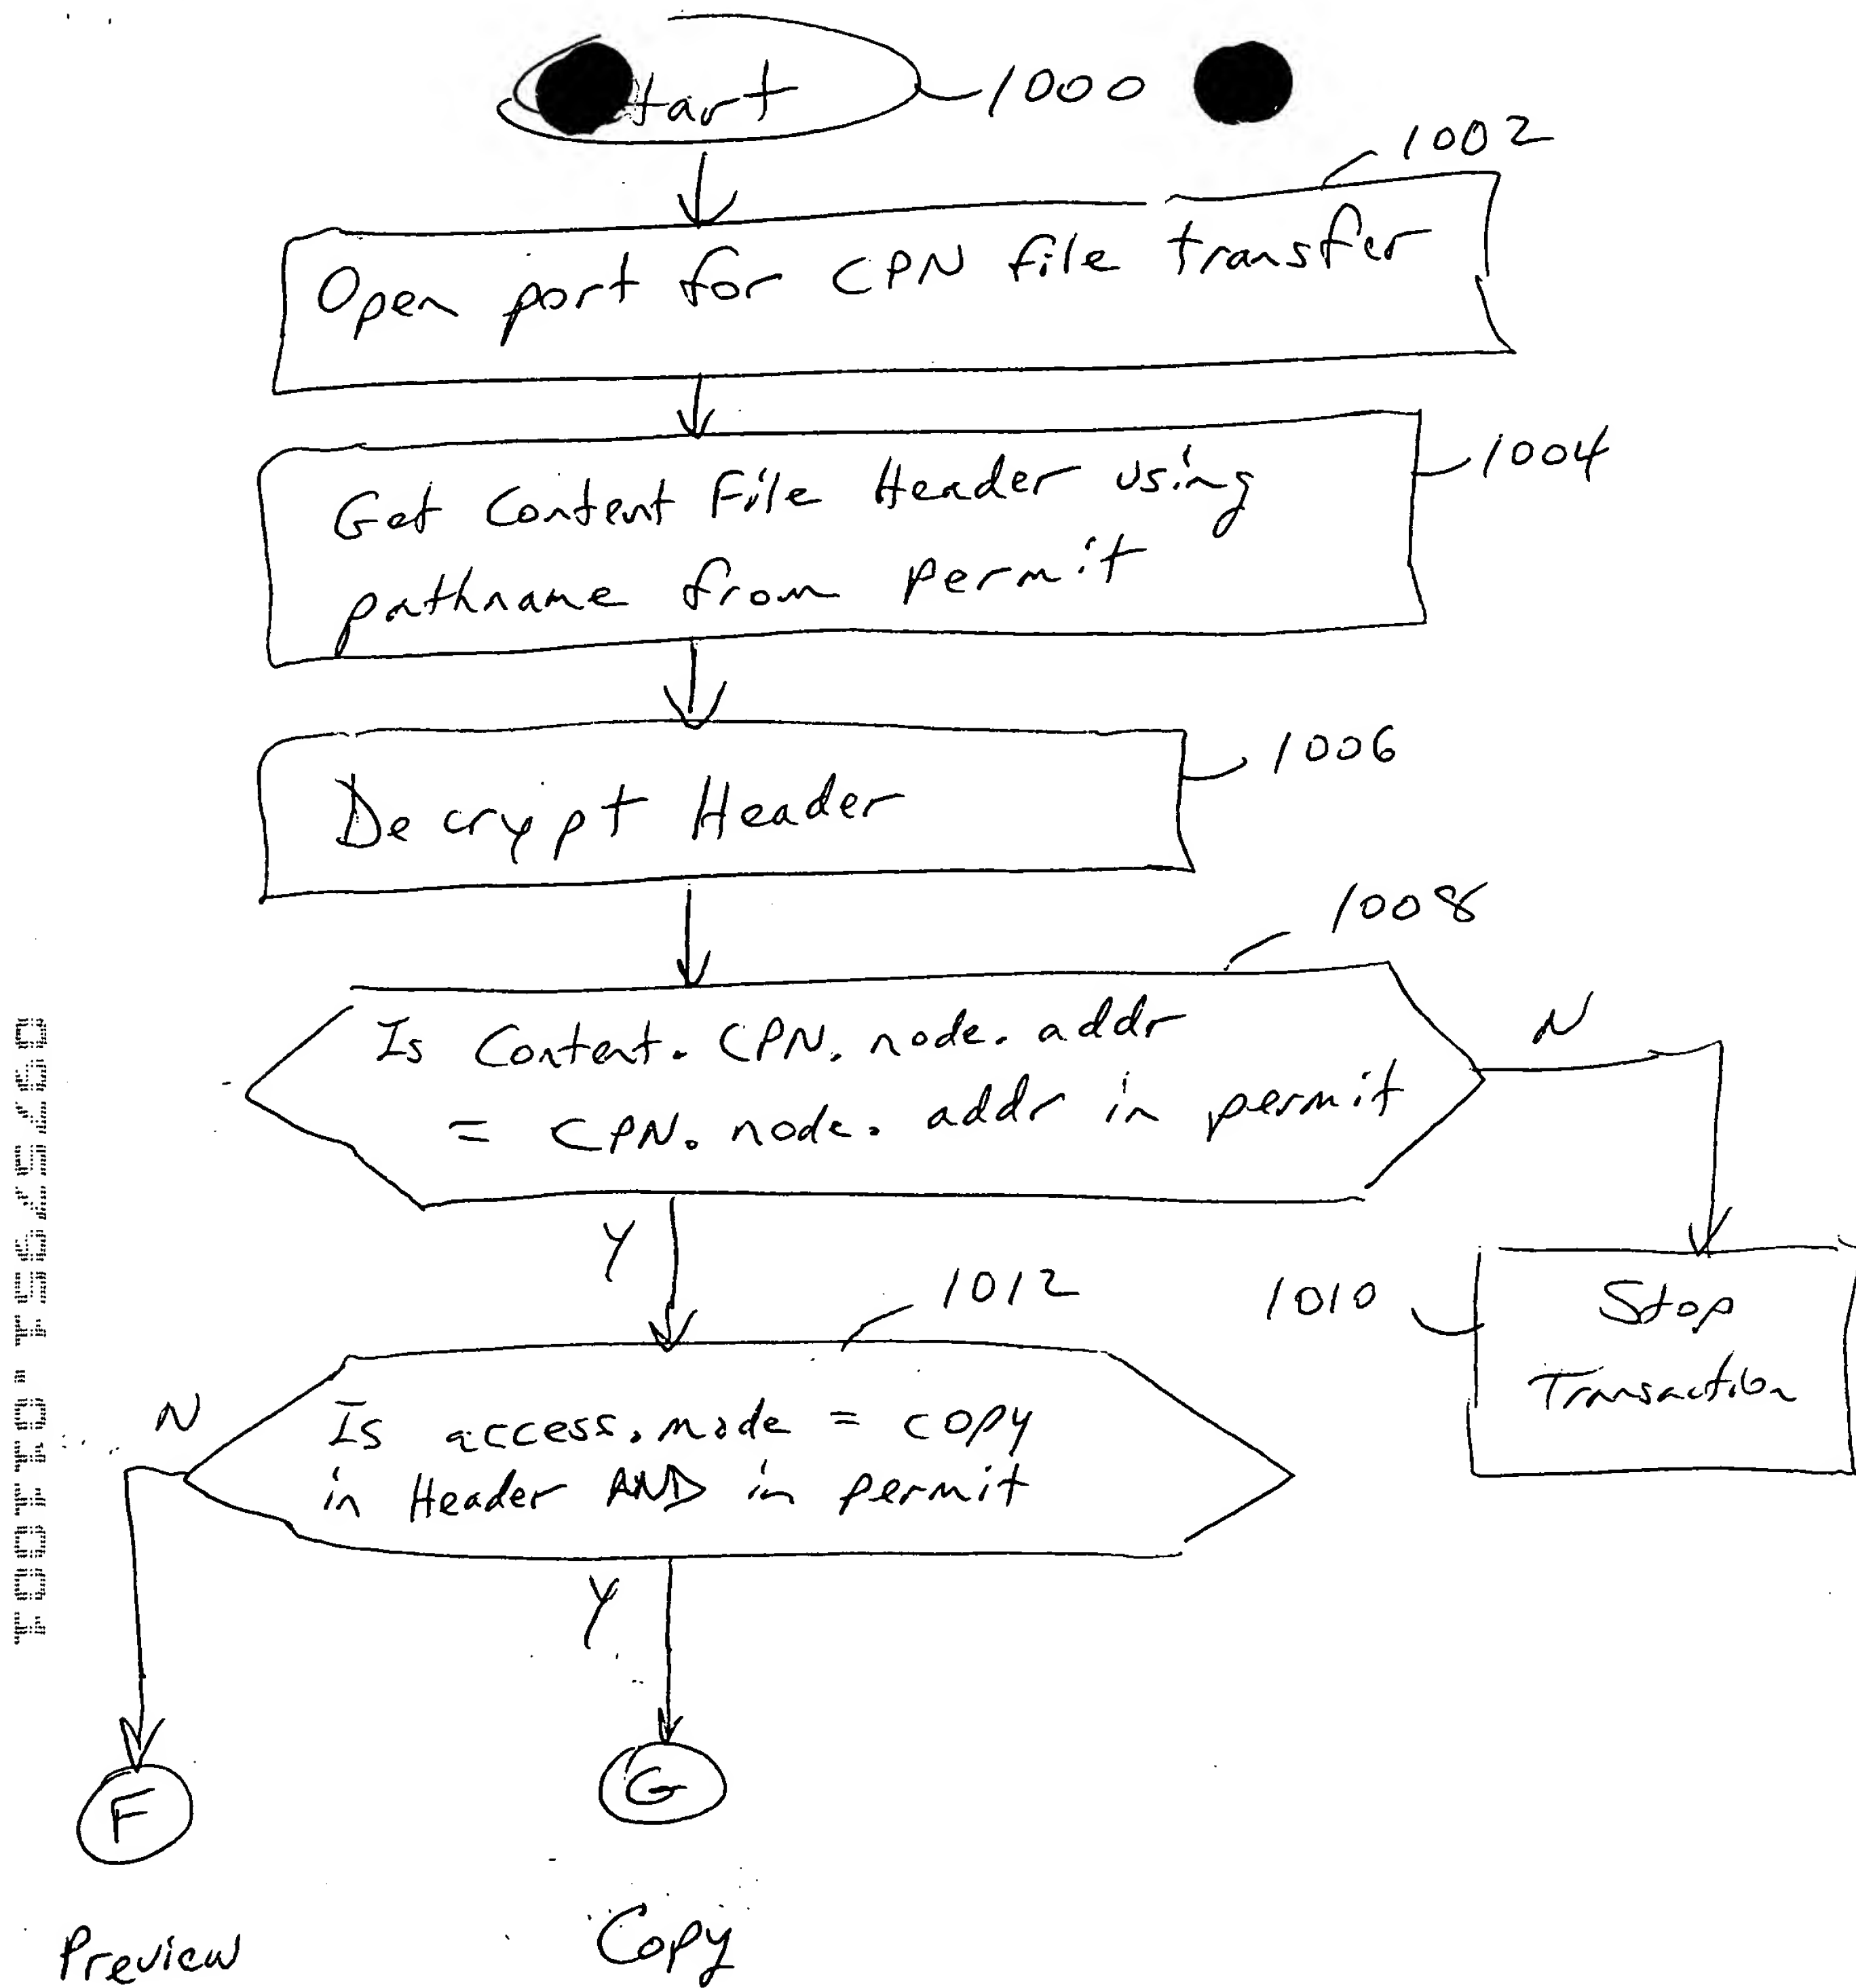 tart 1000
1002
Open port for CPN file transfer
1004
Get Content File Header using
pathname from permit
1006
Decrypt Header
1008
Is Content. CPN. node. addr
= CPN. node. addr in permit
N
Y
1012
1010
Stop
Transaction
N
Is access.mode = copy
in Header AND in permit
Y
F
G
Preview
Copy